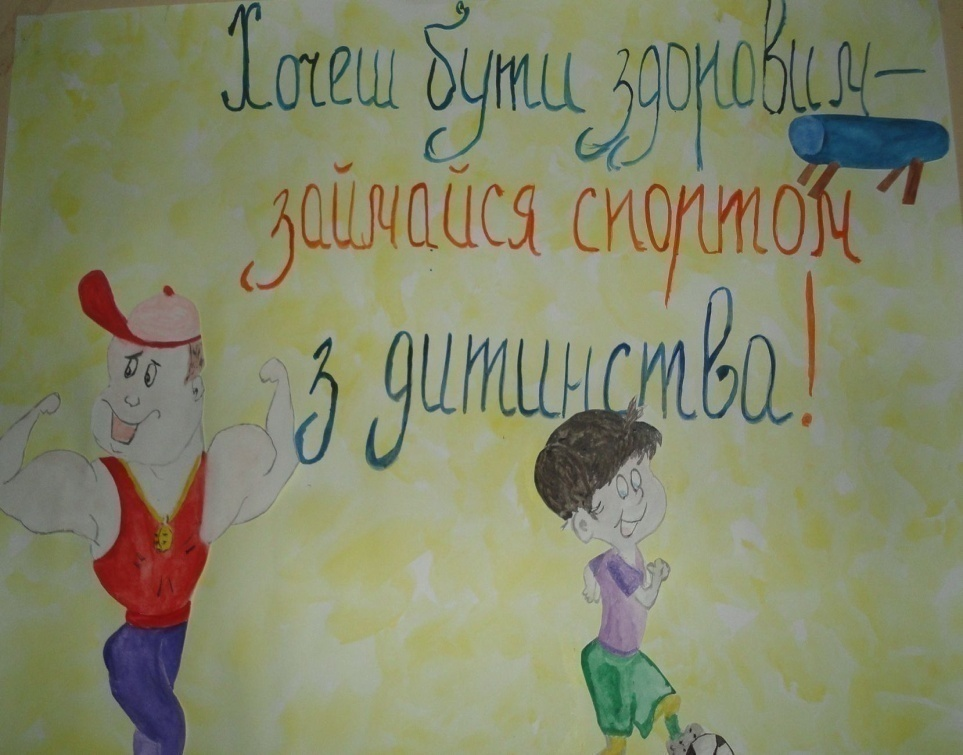 Хочеш бути здоровим –
займайся спортом
з дитинства!